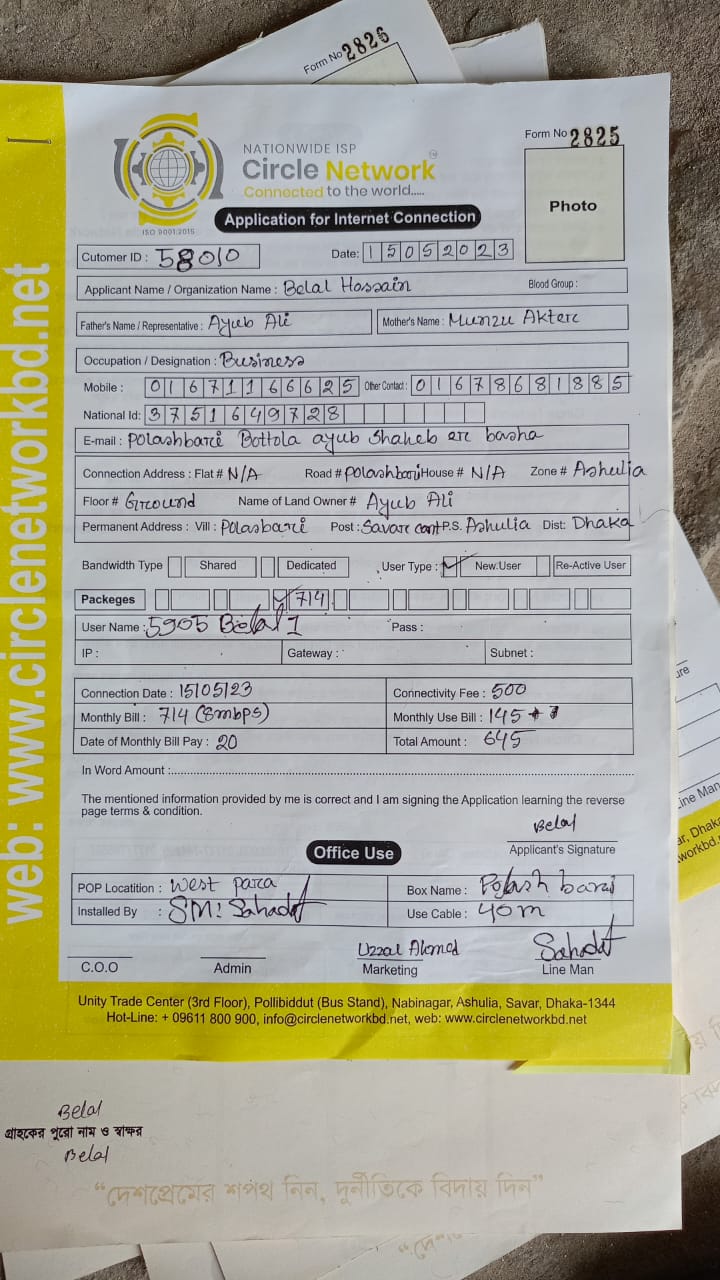 Form No 2826
Form No 2825
NATIONWIDE ISP
Circle Network
Connected to the world.....
ISO 9001:2015
Photo
Application for Internet Connection
Cutomer ID : 58010 Date: 15052023
Applicant Name / Organization Name : Belal Hossain Blood Group :
Father's Name / Representative : Ayub Ali Mother's Name : Munzu Akter
Occupation / Designation : Business
Mobile : 01671166625 Other Contact : 01678681885
National Id: 3751649728
E-mail : Polashbari Bottola ayub Shaheb er basha
Connection Address : Flat # N/A Road # Polashbari House # N/A Zone # Ashulia
Floor # Ground Name of Land Owner # Ayub Ali
Permanent Address : Vill : Polasbari Post : Savar cant P.S. Ashulia Dist: Dhaka
Bandwidth Type Shared Dedicated User Type : ✓ New User Re-Active User
Packeges ✓ 714
User Name : 5905 Belal 1 Pass :
IP : Gateway : Subnet :
Connection Date : 15/05/23 Connectivity Fee : 500
Monthly Bill : 714 (8mbps) Monthly Use Bill : 145
Date of Monthly Bill Pay : 20 Total Amount : 645
In Word Amount :
The mentioned information provided by me is correct and I am signing the Application learning the reverse
page terms & condition.
Belal
Applicant's Signature
Office Use
POP Locatition : West para Box Name : Polash bari
Installed By : SM: Sahadat Use Cable : 40m
Uzzal Ahmed Sahadat
C.O.O Admin Marketing Line Man
Unity Trade Center (3rd Floor), Pollibiddut (Bus Stand), Nabinagar, Ashulia, Savar, Dhaka-1344
Hot-Line: + 09611 800 900, info@circlenetworkbd.net, web: www.circlenetworkbd.net
web: www.circlenetworkbd.net
Belal
গ্রাহকের পুরো নাম ও স্বাক্ষর
Belal
“দেশপ্রেমের শপথ নিন, দুর্নীতিকে বিদায় দিন”
Line Man